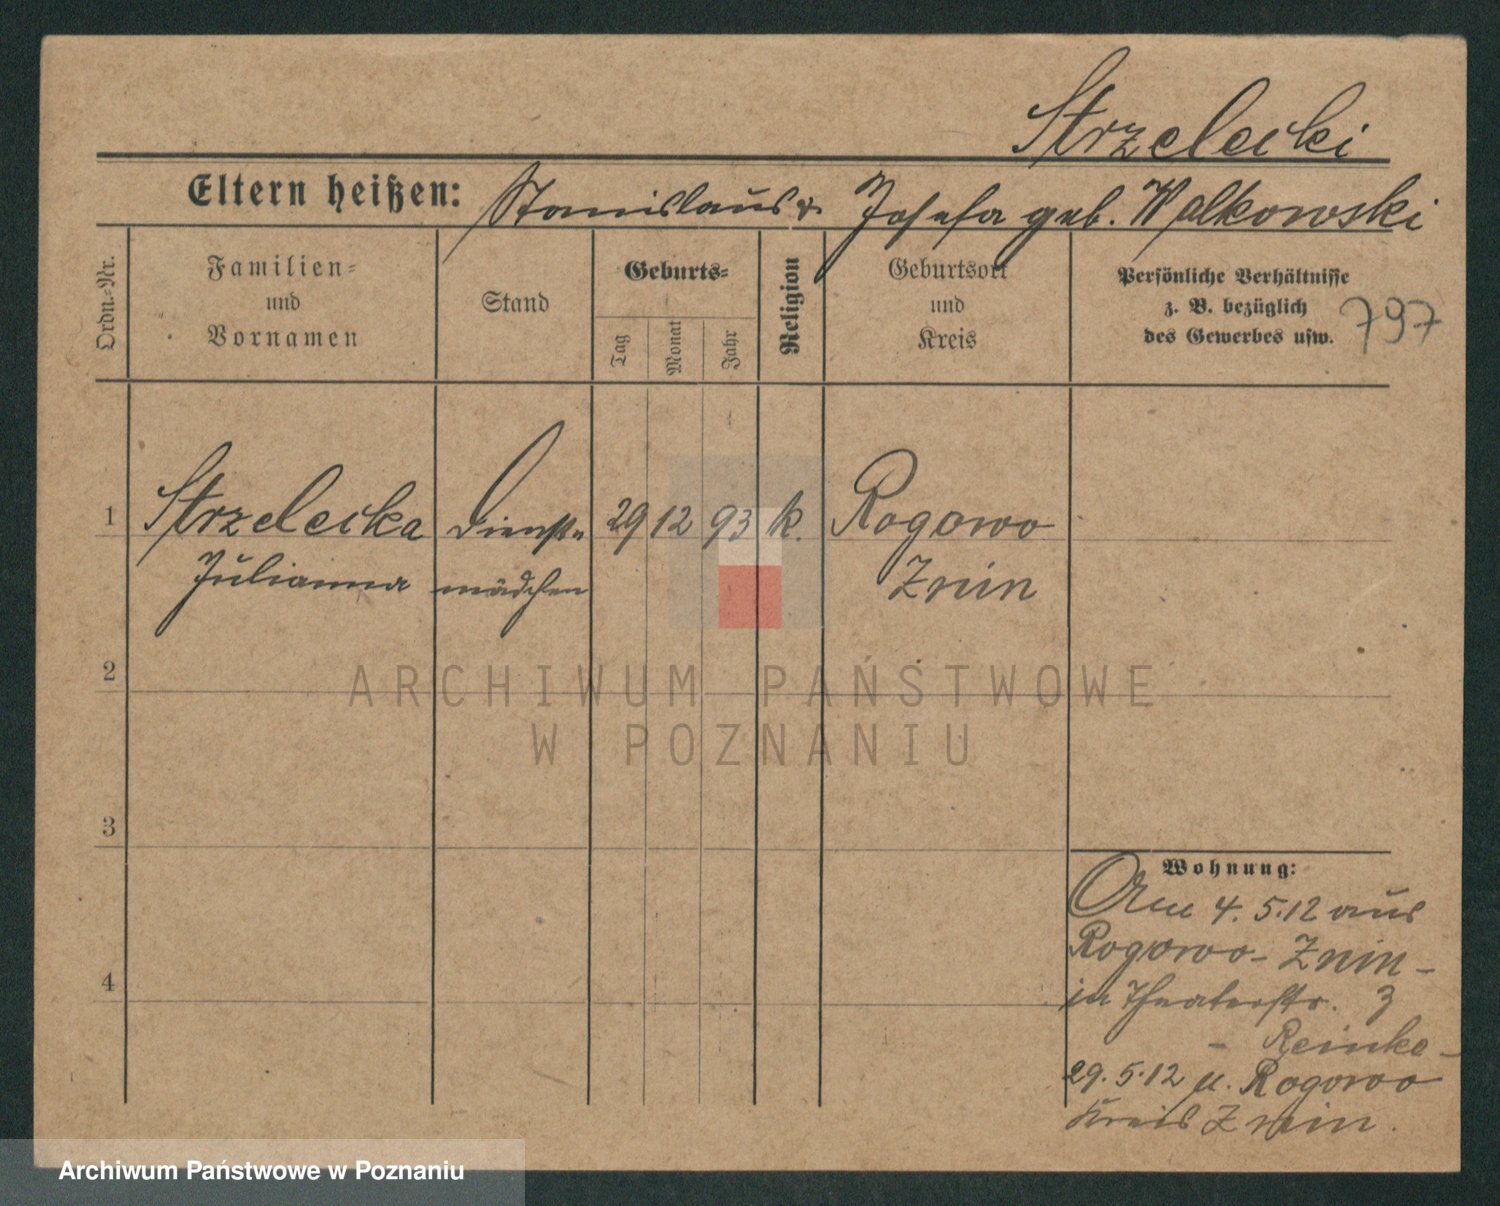 Strzelecki
Eltern heißen: Stanislaus & Josefa geb. Walkowski
Ordn.-Nr.
Familien-
und
Vornamen
Stand
Geburts-
Tag
Monat
Jahr
Religion
Geburtsort
und
Kreis
Persönliche Verhältnisse
z. B. bezüglich
des Gewerbes usw.
797
1 Strzelecka Dienst- 29 12 93 k. Rogowo
Julianna mädchen Znin
2
3
4
Wohnung:
Am 4.5.12 aus
Rogowo- Znin-
in Theaterstr. 3
- Reinke-
29.5.12 n. Rogowo
Kreis Znin.
ARCHIWUM PAŃSTWOWE
W POZNANIU
Archiwum Państwowe w Poznaniu